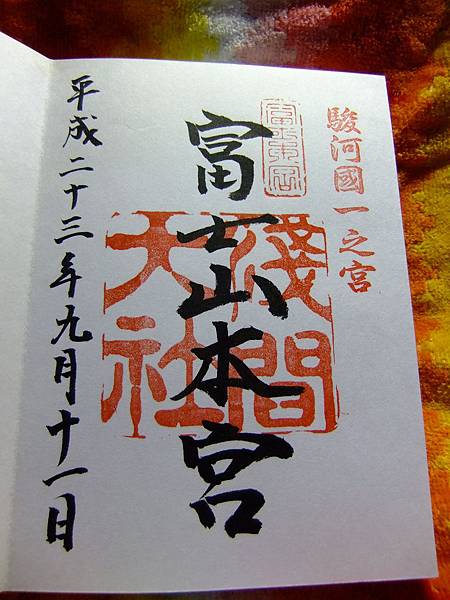 駿河國一之宮
富士山本宮
淺間大社
平成二十三年九月十一日